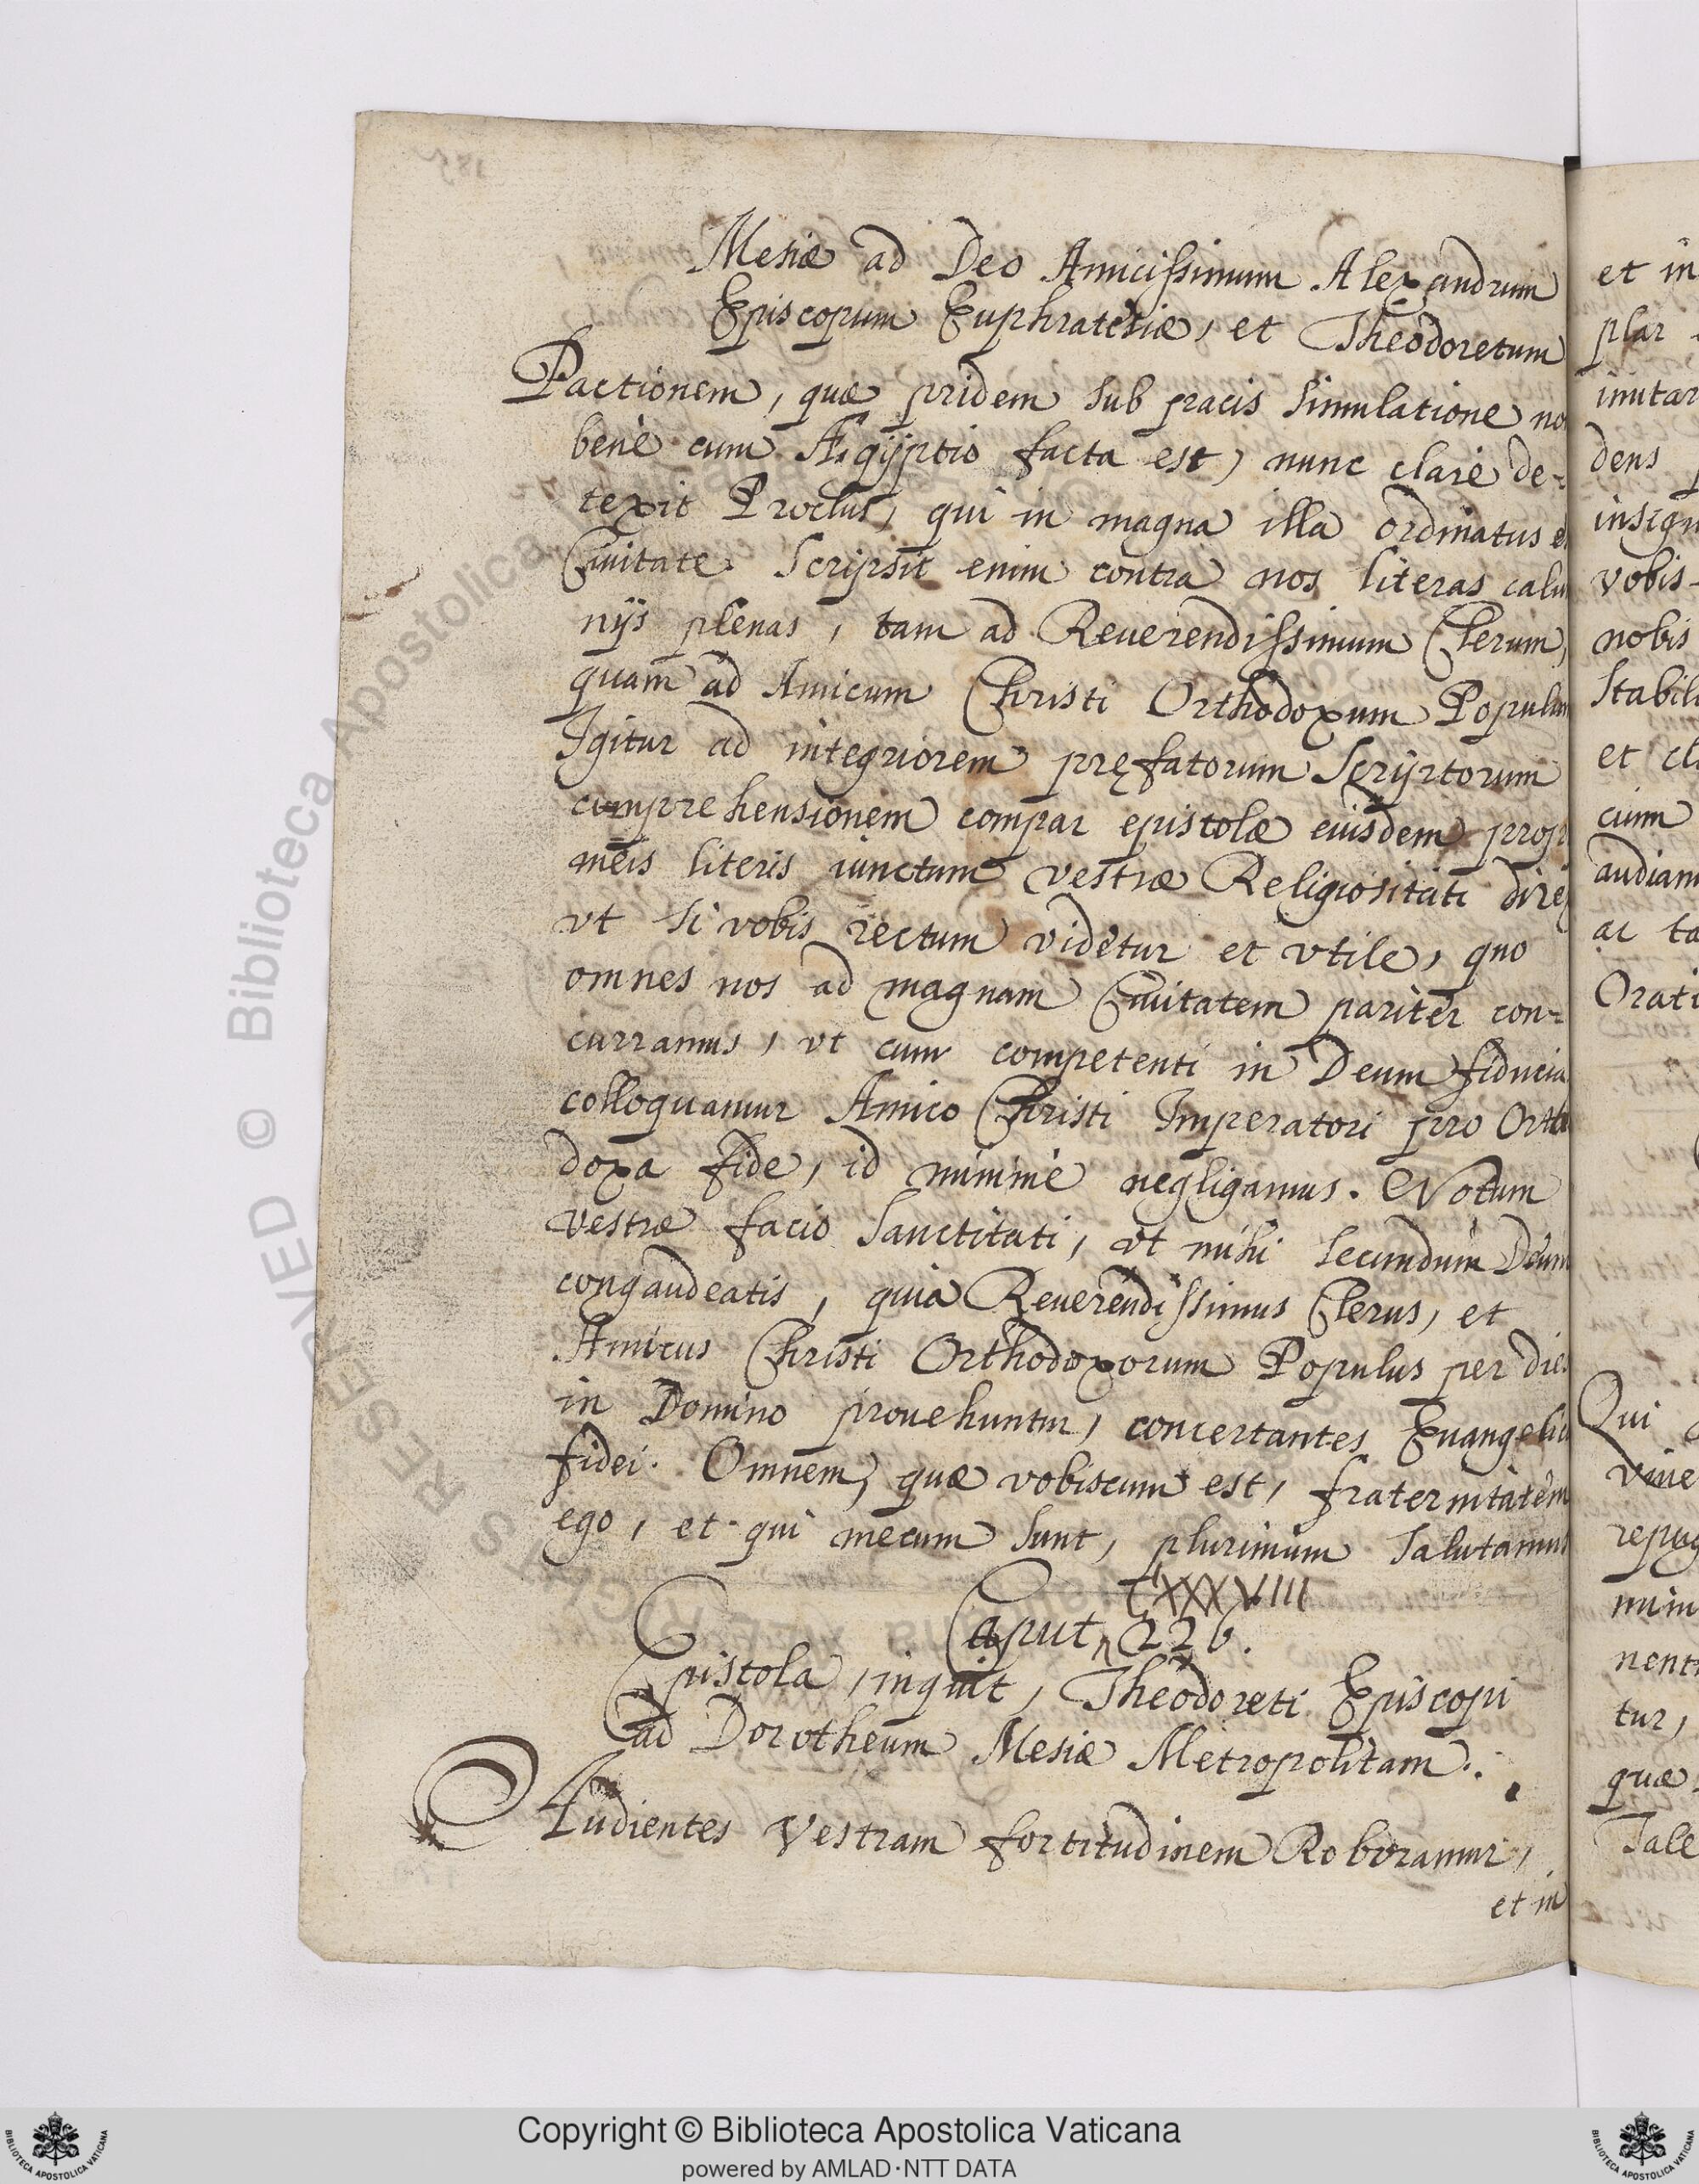 Mesiæ ad Deo Amicissimum Alexandrum
Episcopum Euphratesiæ, et Theodoretum
Pactionem, quæ pridem sub pacis simulatione no
benè cum Ægyptio facta est, nunc clarè de-
texit Proclus, qui in magna illa ordinatus e
Ciuitate. Scripsit enim contra nos literas calu
nijs plenas, tam ad Reuerendissimum Clerum,
quam ad Amicum Christi Orthodoxum Populum
Igitur ad integriorem pręfatorum Scriptorum
comprehensionem compar epistolæ eiusdem prop
meis literis iunctum vestræ Religiositati direx
vt si vobis rectum videtur et vtile, quo
omnes nos ad magnam Ciuitatem pariter con-
curramus, vt cum competenti in Deum fiducia
colloquamur Amico Christi Imperatori pro Ortho
doxa fide, id minimè negligamus. Notum
vestræ facio Sanctitati, vt mihi secundum Deum
congaudeatis, quia Reuerendissimus Clerus, et
Amicus Christi Orthodoxorum Populus per dies
in Domino prouehuntur, concertantes Euangelic
fidei. Omnem, quæ vobiscum est, fraternitatem
ego, et qui mecum sunt, plurimum salutamus
CXXXVIII
Caput 226.
Epistola, inquit, Theodoreti Episcopi
ad Dorotheum Mesiæ Metropolitam.
Audientes Vestram fortitudinem Roboramur,
et in
et in
plar
imitar
dens
insign
vobis
nobis
stabil
et cl
cum
audiam
ac ta
Orati
Qui
viue
repug
mini
nent
tur,
quæ
Tale
© Biblioteca Apostolica
Copyright © Biblioteca Apostolica Vaticana
powered by AMLAD·NTT DATA
BIBLIOTECA APOSTOLICA VATICANA
BIBLIOTECA APOSTOLICA VATICANA